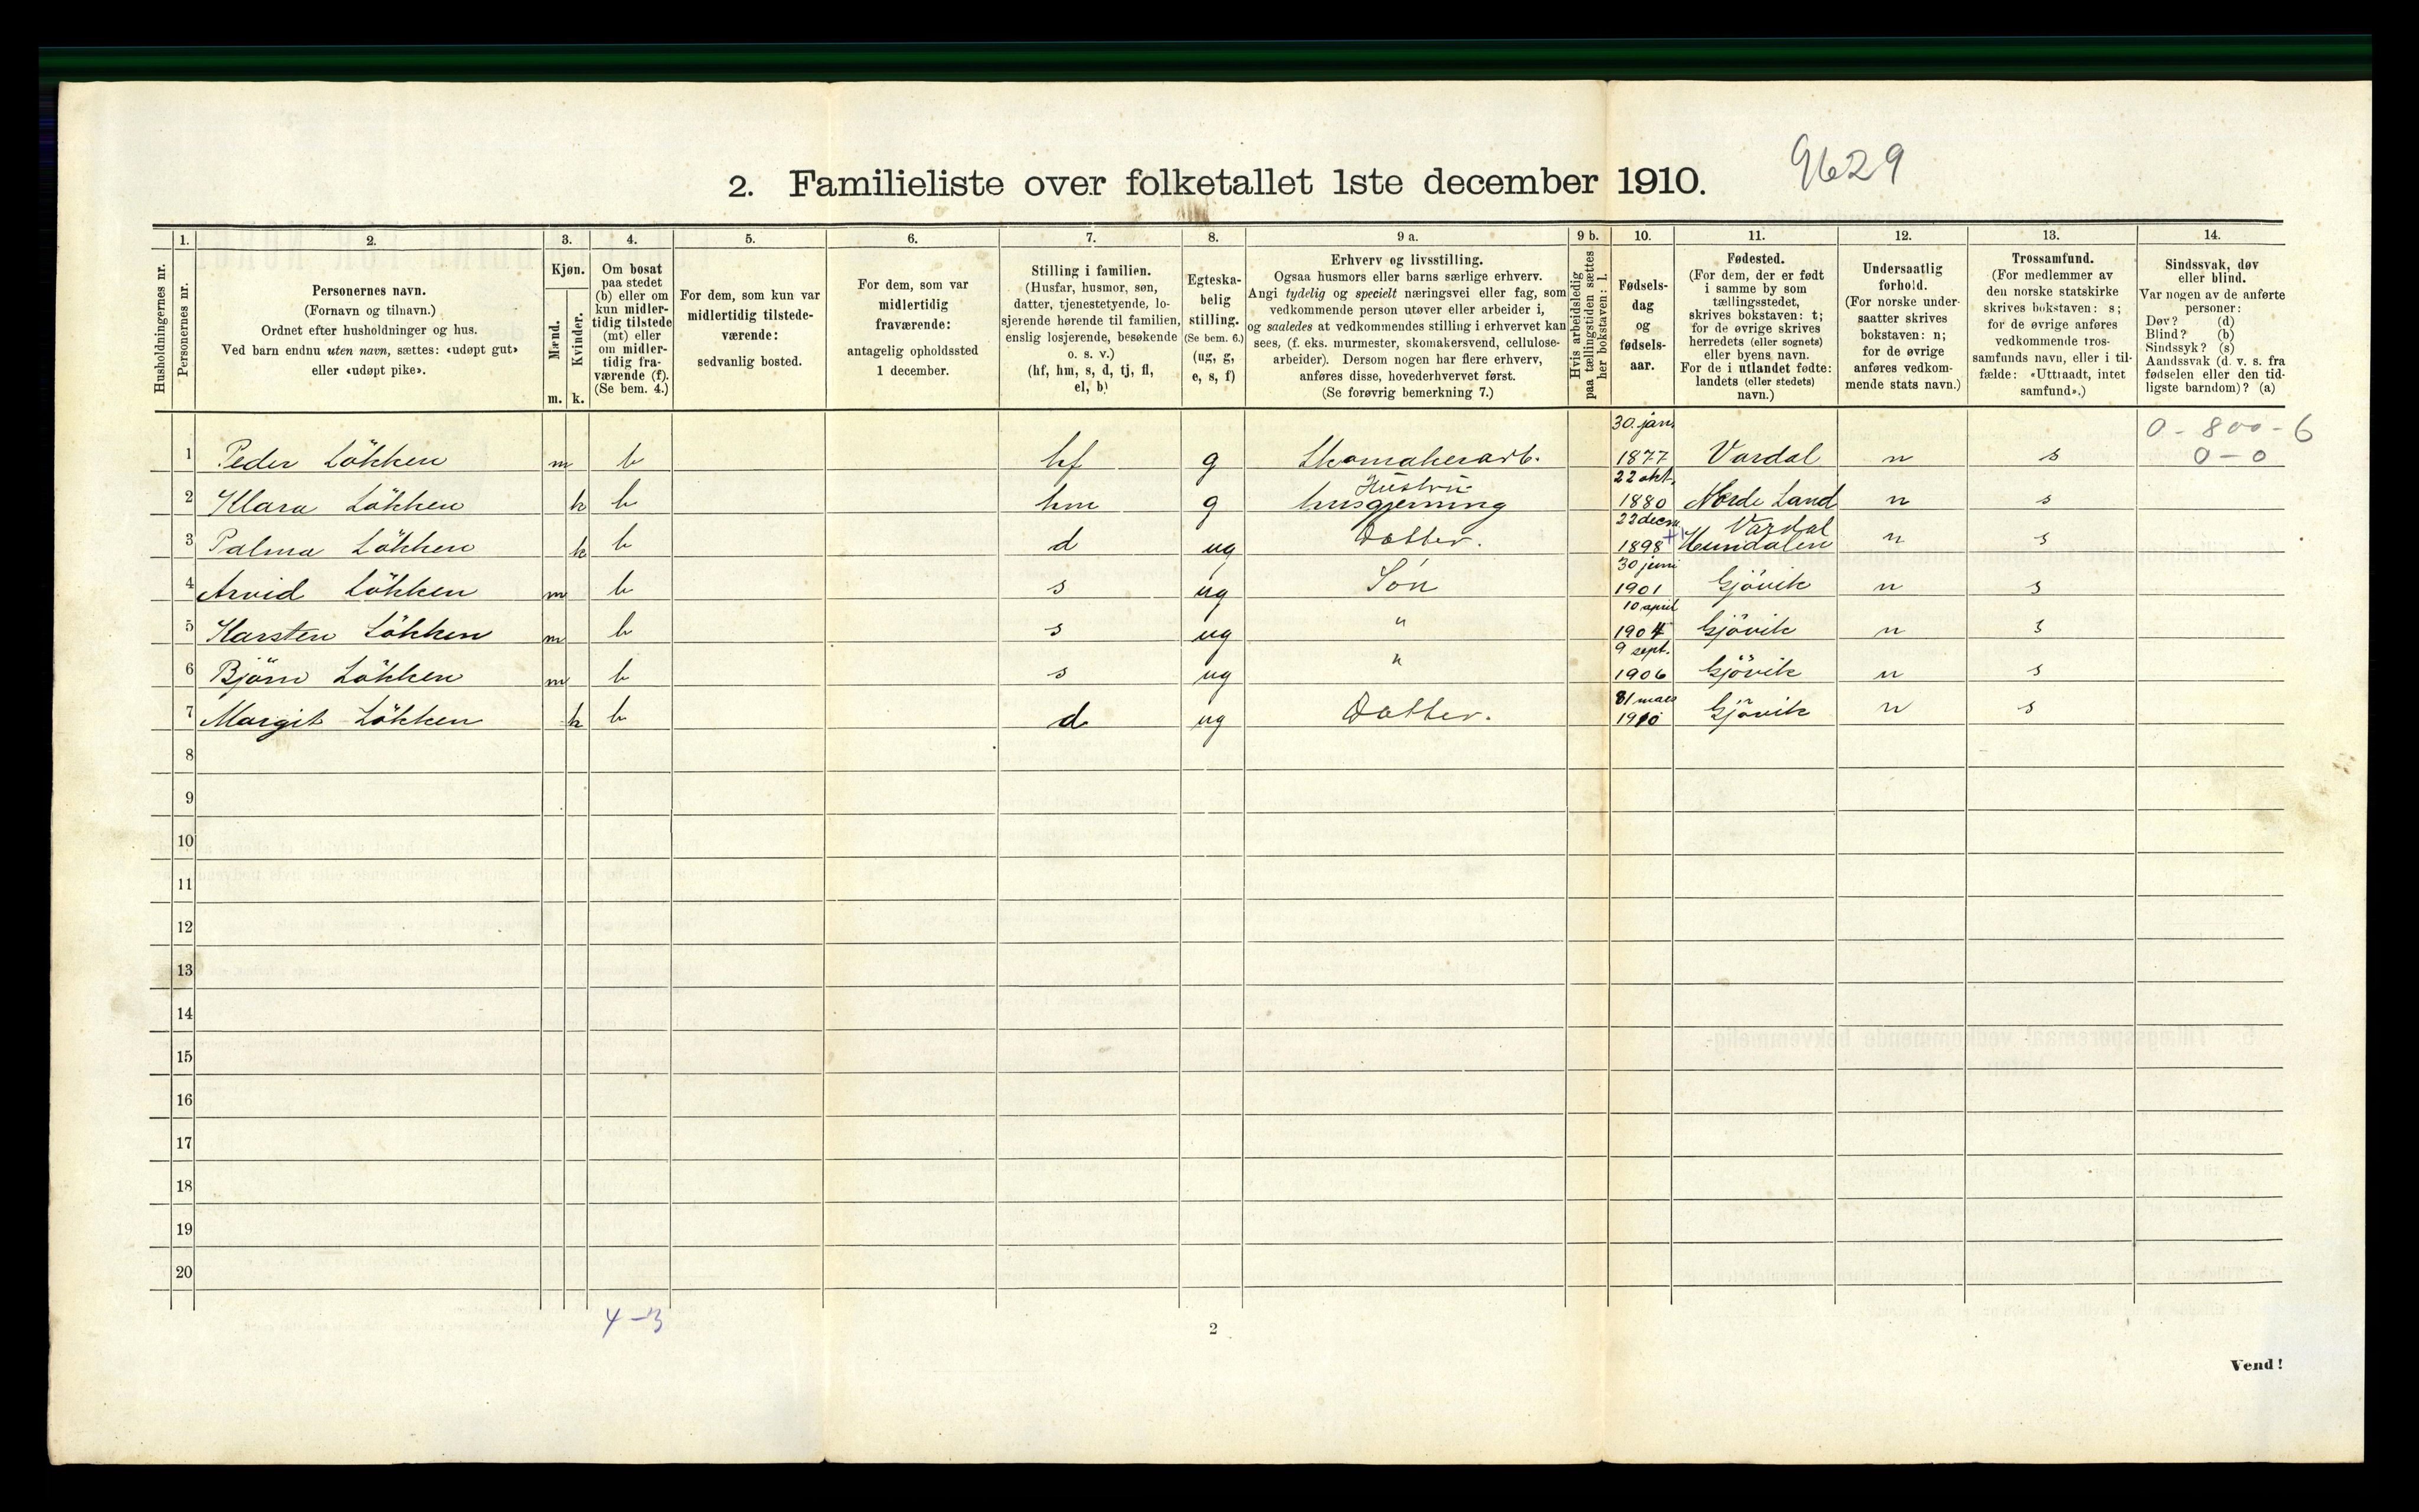 2. Familieliste over folketallet 1ste december 1910.
9629
Husholdningernes nr.
1.
Personernes nr.
2.
Personernes navn.
(Fornavn og tilnavn.)
Ordnet efter husholdninger og hus.
Ved barn endnu uten navn, sættes: «udøpt gut»
eller «udøpt pike».
3.
Kjøn.
Mænd.
Kvinder.
m. k.
4.
Om bosat
paa stedet
(b) eller om
kun midler-
tidig tilstede
(mt) eller
om midler-
tidig fra-
værende (f).
(Se bem. 4.)
5.
For dem, som kun var
midlertidig tilstede-
værende:
sedvanlig bosted.
6.
For dem, som var
midlertidig
fraværende:
antagelig opholdssted
1 december.
7.
Stilling i familien.
(Husfar, husmor, søn,
datter, tjenestetyende, lo-
sjerende hørende til familien,
enslig losjerende, besøkende
o. s. v.)
(hf, hm, s, d, tj, fl,
el, b)
8.
Egteska-
belig
stilling.
(Se bem. 6.)
(ug, g,
e, s, f)
9 a.
Erhverv og livsstilling.
Ogsaa husmors eller barns særlige erhverv.
Angi tydelig og specielt næringsvei eller fag, som
vedkommende person utøver eller arbeider i,
og saaledes at vedkommendes stilling i erhvervet kan
sees, (f. eks. murmester, skomakersvend, cellulose-
arbeider). Dersom nogen har flere erhverv,
anføres disse, hovederhvervet først.
(Se forøvrig bemerkning 7.)
9 b.
Hvis arbeidsledig
paa tællingstiden sættes
her bokstaven: l.
10.
Fødsels-
dag
og
fødsels-
aar.
11.
Fødested.
(For dem, der er født
i samme by som
tællingsstedet,
skrives bokstaven: t;
for de øvrige skrives
herredets (eller sognets)
eller byens navn.
For de i utlandet fødte:
landets (eller stedets)
navn.)
12.
Undersaatlig
forhold.
(For norske under-
saatter skrives
bokstaven: n;
for de øvrige
anføres vedkom-
mende stats navn.)
13.
Trossamfund.
(For medlemmer av
den norske statskirke
skrives bokstaven: s;
for de øvrige anføres
vedkommende tros-
samfunds navn, eller i til-
fælde: «Uttraadt, intet
samfund».)
14.
Sindssvak, døv
eller blind.
Var nogen av de anførte
personer:
Døv? (d)
Blind? (b)
Sindssyk? (s)
Aandssvak (d. v. s. fra
fødselen eller den tid-
ligste barndom)? (a)
0 - 800 - 6
0 - 0
1 Peder Lökken m b hf g Skomakerarb. 30. jan. 1877 Vardal n s
2 Klara Lökken k b hm g Hustru husgjerning 22 okt. 1880 Nordre Land n s
3 Palma Lökken k b d ug Datter. 22 decm 1898 Vardal Hundalen n s
4 Arvid Lökken m b s ug Sön 30 juni 1901 Gjövik n s
5 Karsten Lökken m b s ug " 10 april 1904 Gjövik n s
6 Björn Lökken m b s ug " 9 sept. 1906 Gjövik n s
7 Margit Lökken k b d ug Datter. 31 mars 1910 Gjövik n s
8
9
10
11
12
13
14
15
16
17
18
19
20
4-3
2
Vend!